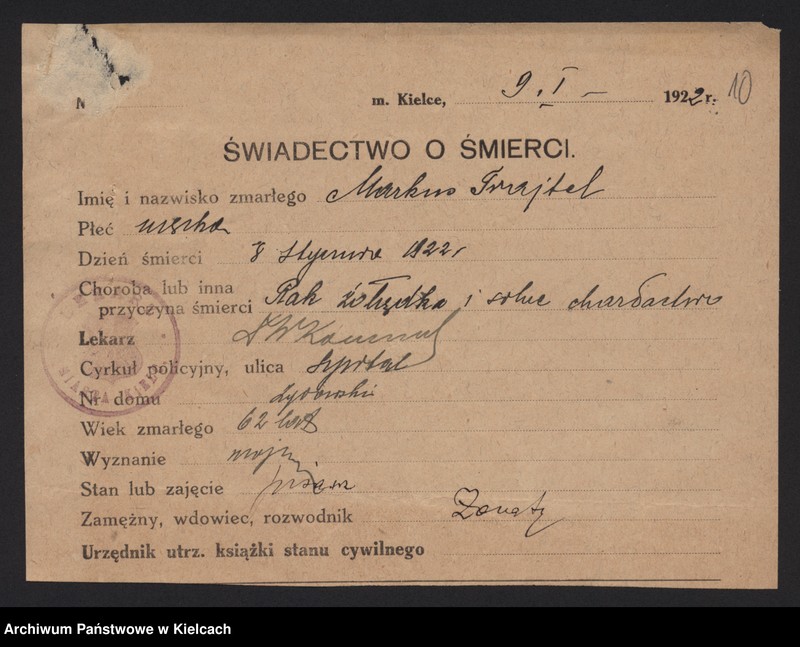 N m. Kielce, 9. I – 1922 r. 10
ŚWIADECTWO O ŚMIERCI.
Imię i nazwisko zmarłego Markus
Płeć męska
Dzień śmierci 8 Stycznia 1922 r
Choroba lub inna
przyczyna śmierci Rak żołądka i
Lekarz
Cyrkuł policyjny, ulica Szpital
Nr domu żydowski
Wiek zmarłego 62 lat
Wyznanie mojż
Stan lub zajęcie
Zamężny, wdowiec, rozwodnik Żonaty
Urzędnik utrz. książki stanu cywilnego
MIASTA KIELC
Archiwum Państwowe w Kielcach